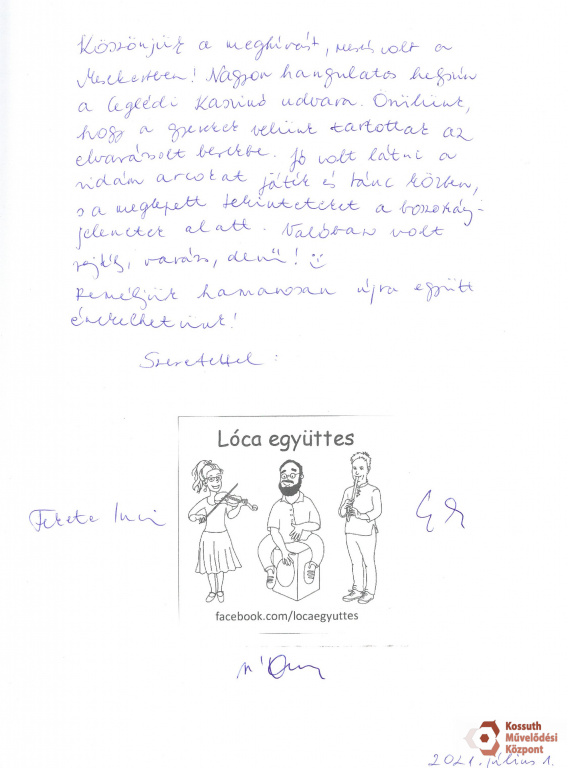 Köszönjük a meghívást, mesés volt a
Mesekertben! Nagyon hangulatos helyszín
a Ceglédi Kaszinó udvara. Örülünk,
hogy a gyerekek velünk tartottak az
elvarázsolt berekbe. Jó volt látni a
vidám arcokat játék és tánc közben,
s a meglepett tekinteteket a boszorkány-
jelenetek alatt. Valóban volt
rejtély, varázs, derű!
Reméljük hamarosan újra együtt
énekelhetünk!
Szeretettel:
Lóca együttes
Fekete
facebook.com/locaegyuttes
Kossuth
Művelődési
Központ
2021. július 1.